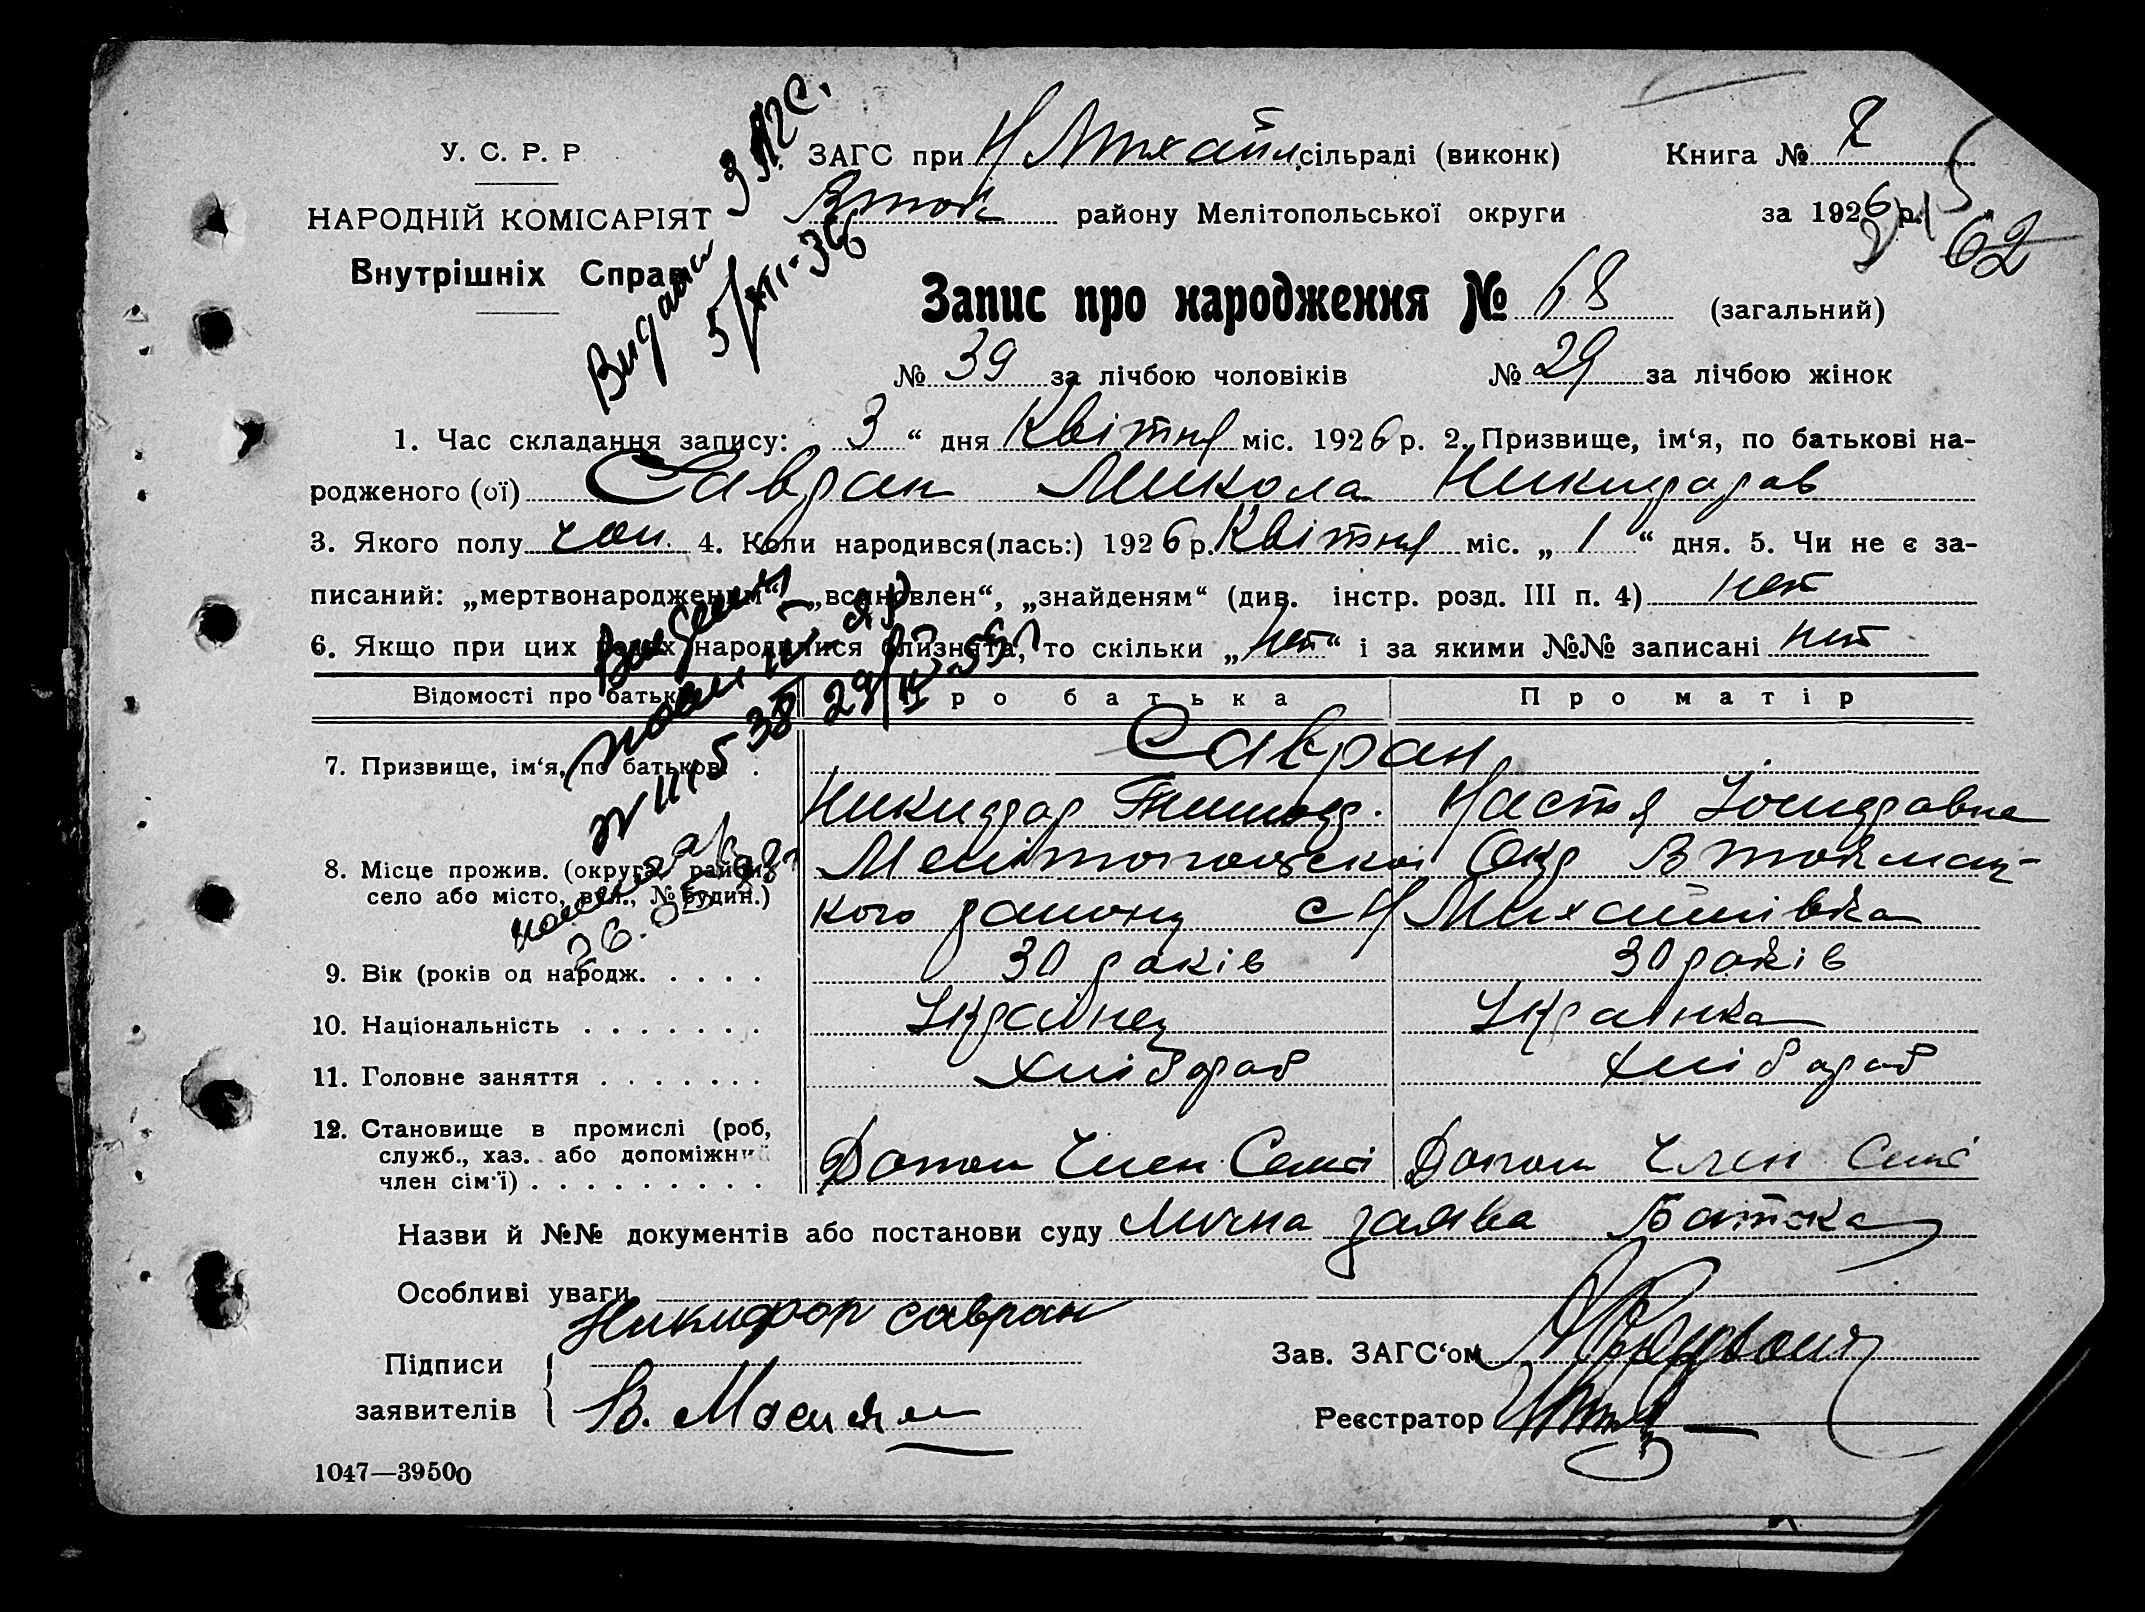 У. С. Р. Р.
НАРОДНІЙ КОМІСАРІЯТ
Внутрішніх Справ
ЗАГС при Н Михайл. сільраді (виконк)
Книга № 2
Вток району Мелітопольської округи
за 1926 р.
62
Видана
5/XII-36
Запис про народження № 68 (загальний)
№ 39 за лічбою чоловіків № 29 за лічбою жінок
1. Час складання запису: 3 “ дня Квітня міс. 1926 р. 2. Призвище, ім‘я, по батькові на-
родженого (ої) Савран Микола Никифоров
3. Якого полу чол. 4. Коли народився(лась:) 1926 р. Квітня міс. „ 1 “ дня. 5. Чи не є за-
писаний: „мертвонародженим“, „всиновлен“, „знайденям“ (див. інстр. розд. III п. 4) нет
6. Якщо при цих родах народилися близнята, то скільки „ нет “ і за якими №№ записані нет
Відомості про батьків
Про батька
Про матір
7. Призвище, ім‘я, по батькові .
Савран
Никифор Тимоф. Настя Юсифовна
8. Місце прожив. (округа, район,
село або місто, вул., № будин.)
Мелітопольскоі Окр Втокмац-
кого району с Н Михайлівка
9. Вік (років од народж. . . . .
30 років 30 років
10. Національність . . . . . . .
Українец Українка
11. Головне заняття . . . . . . .
Хлібороб хлібороб
12. Становище в промислі (роб,
служб., хаз. або допоміжний
член сім‘ї) . . . . . . . . . .
Допом Член Семі Допом Член Семі
Назви й №№ документів або постанови суду Лична заява Батька
Особливі уваги
Підписи
заявителів
Никифор савран
Зав. ЗАГС‘ом
Реєстратор
1047—39500